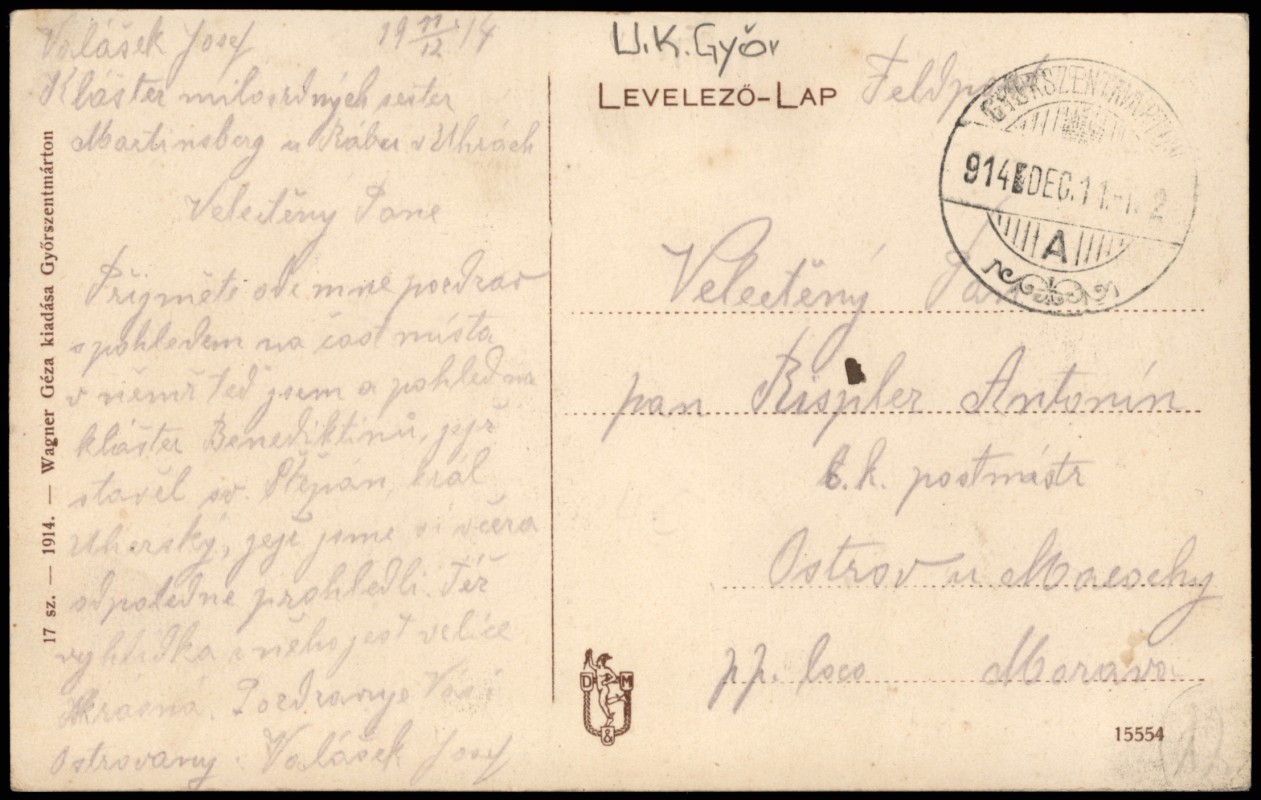 Valášek Josef 19 11/12 14
Klášter milosrdných sester
Martinsberg u Rábu v Uhrách
Velectěný Pane
Přijměte ode mne pozdrav
s pohledem na část místa
v němž teď jsem a pohled na
klášter Benediktinů, jejž
stavěl sv. Štěpán, král
Uherský, jejž jsme si včera
odpoledne prohledli. Též
vyhlídka z něho jest velice
krásná. Pozdravuje Vás i
Ostrovany Valášek Josef
17 sz. — 1914. — Wagner Géza kiadása Győrszentmárton
U.K. Győr
LEVELEZŐ-LAP
Feldpost
GYŐRSZENTMÁRTON
914 DEC. 11
A
Velectěný Pan
pan Rispler Antonín
c.k. postmistr
Ostrov u Macochy
pp. loco Morava
D M
&
15554